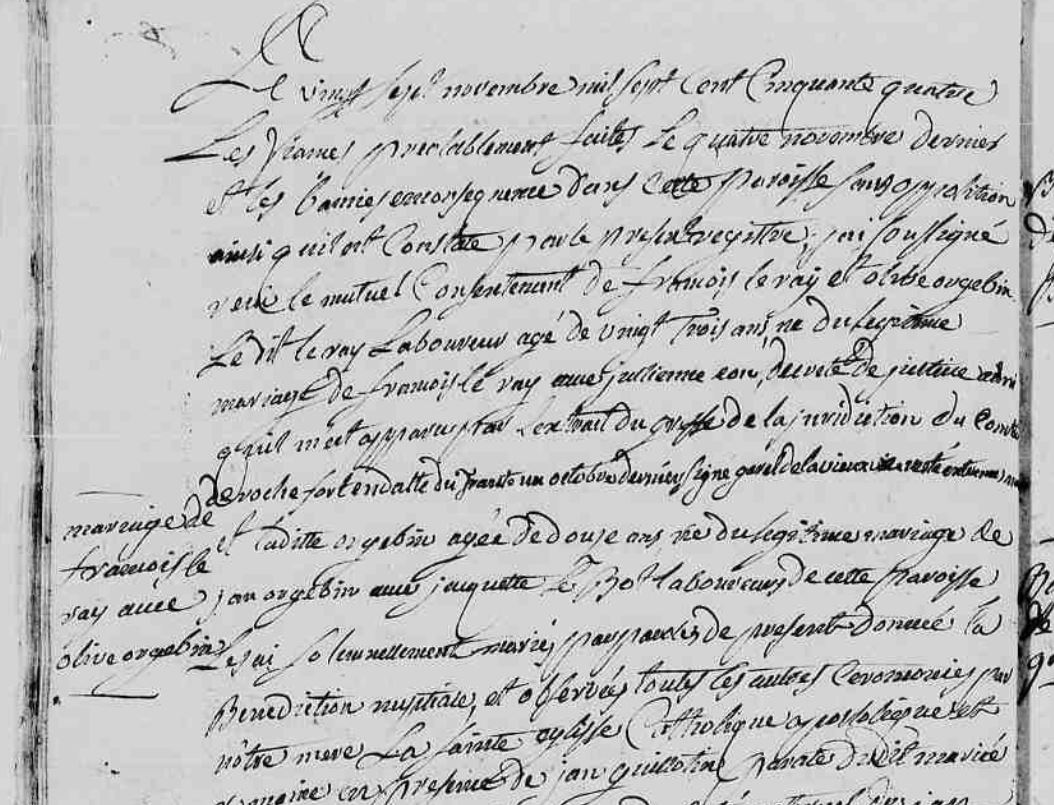 Le vingt sept novembre mil sept cent Cinquante quatre
Les fiames prealablement faites Le quatre novembre dernier
et les bannies en consequence dans cette paroisse sans opposition
ainsi quil est Constaté par le present registre, jai soussigné
recu le mutuel Consentement de francois le ray et olive orgebin
Le dit le ray Laboureur agé de vingt trois ans, né du legitime
mariage de francois le ray avec julienne eon, decreté de justice
quil m'est apparu par Lextrait du greffe de la juridiction du Comté
de rochefort en datte du trante un octobre dernier signé
mariage de
francois le
ray avec
olive orgebin
et laditte orgebin agée de douse ans née du legitime mariage de
jan orgebin avec jacquette le Bot laboureurs de cette paroisse
Les ai solennellement mariés par paroles de present donné la
Benediction nuptiale, et observés toutes les autres Ceremonies par
nôtre mere La sainte eglisse Catholique apostolique et
romaine en presence de jan guillotin, parate dudit marié